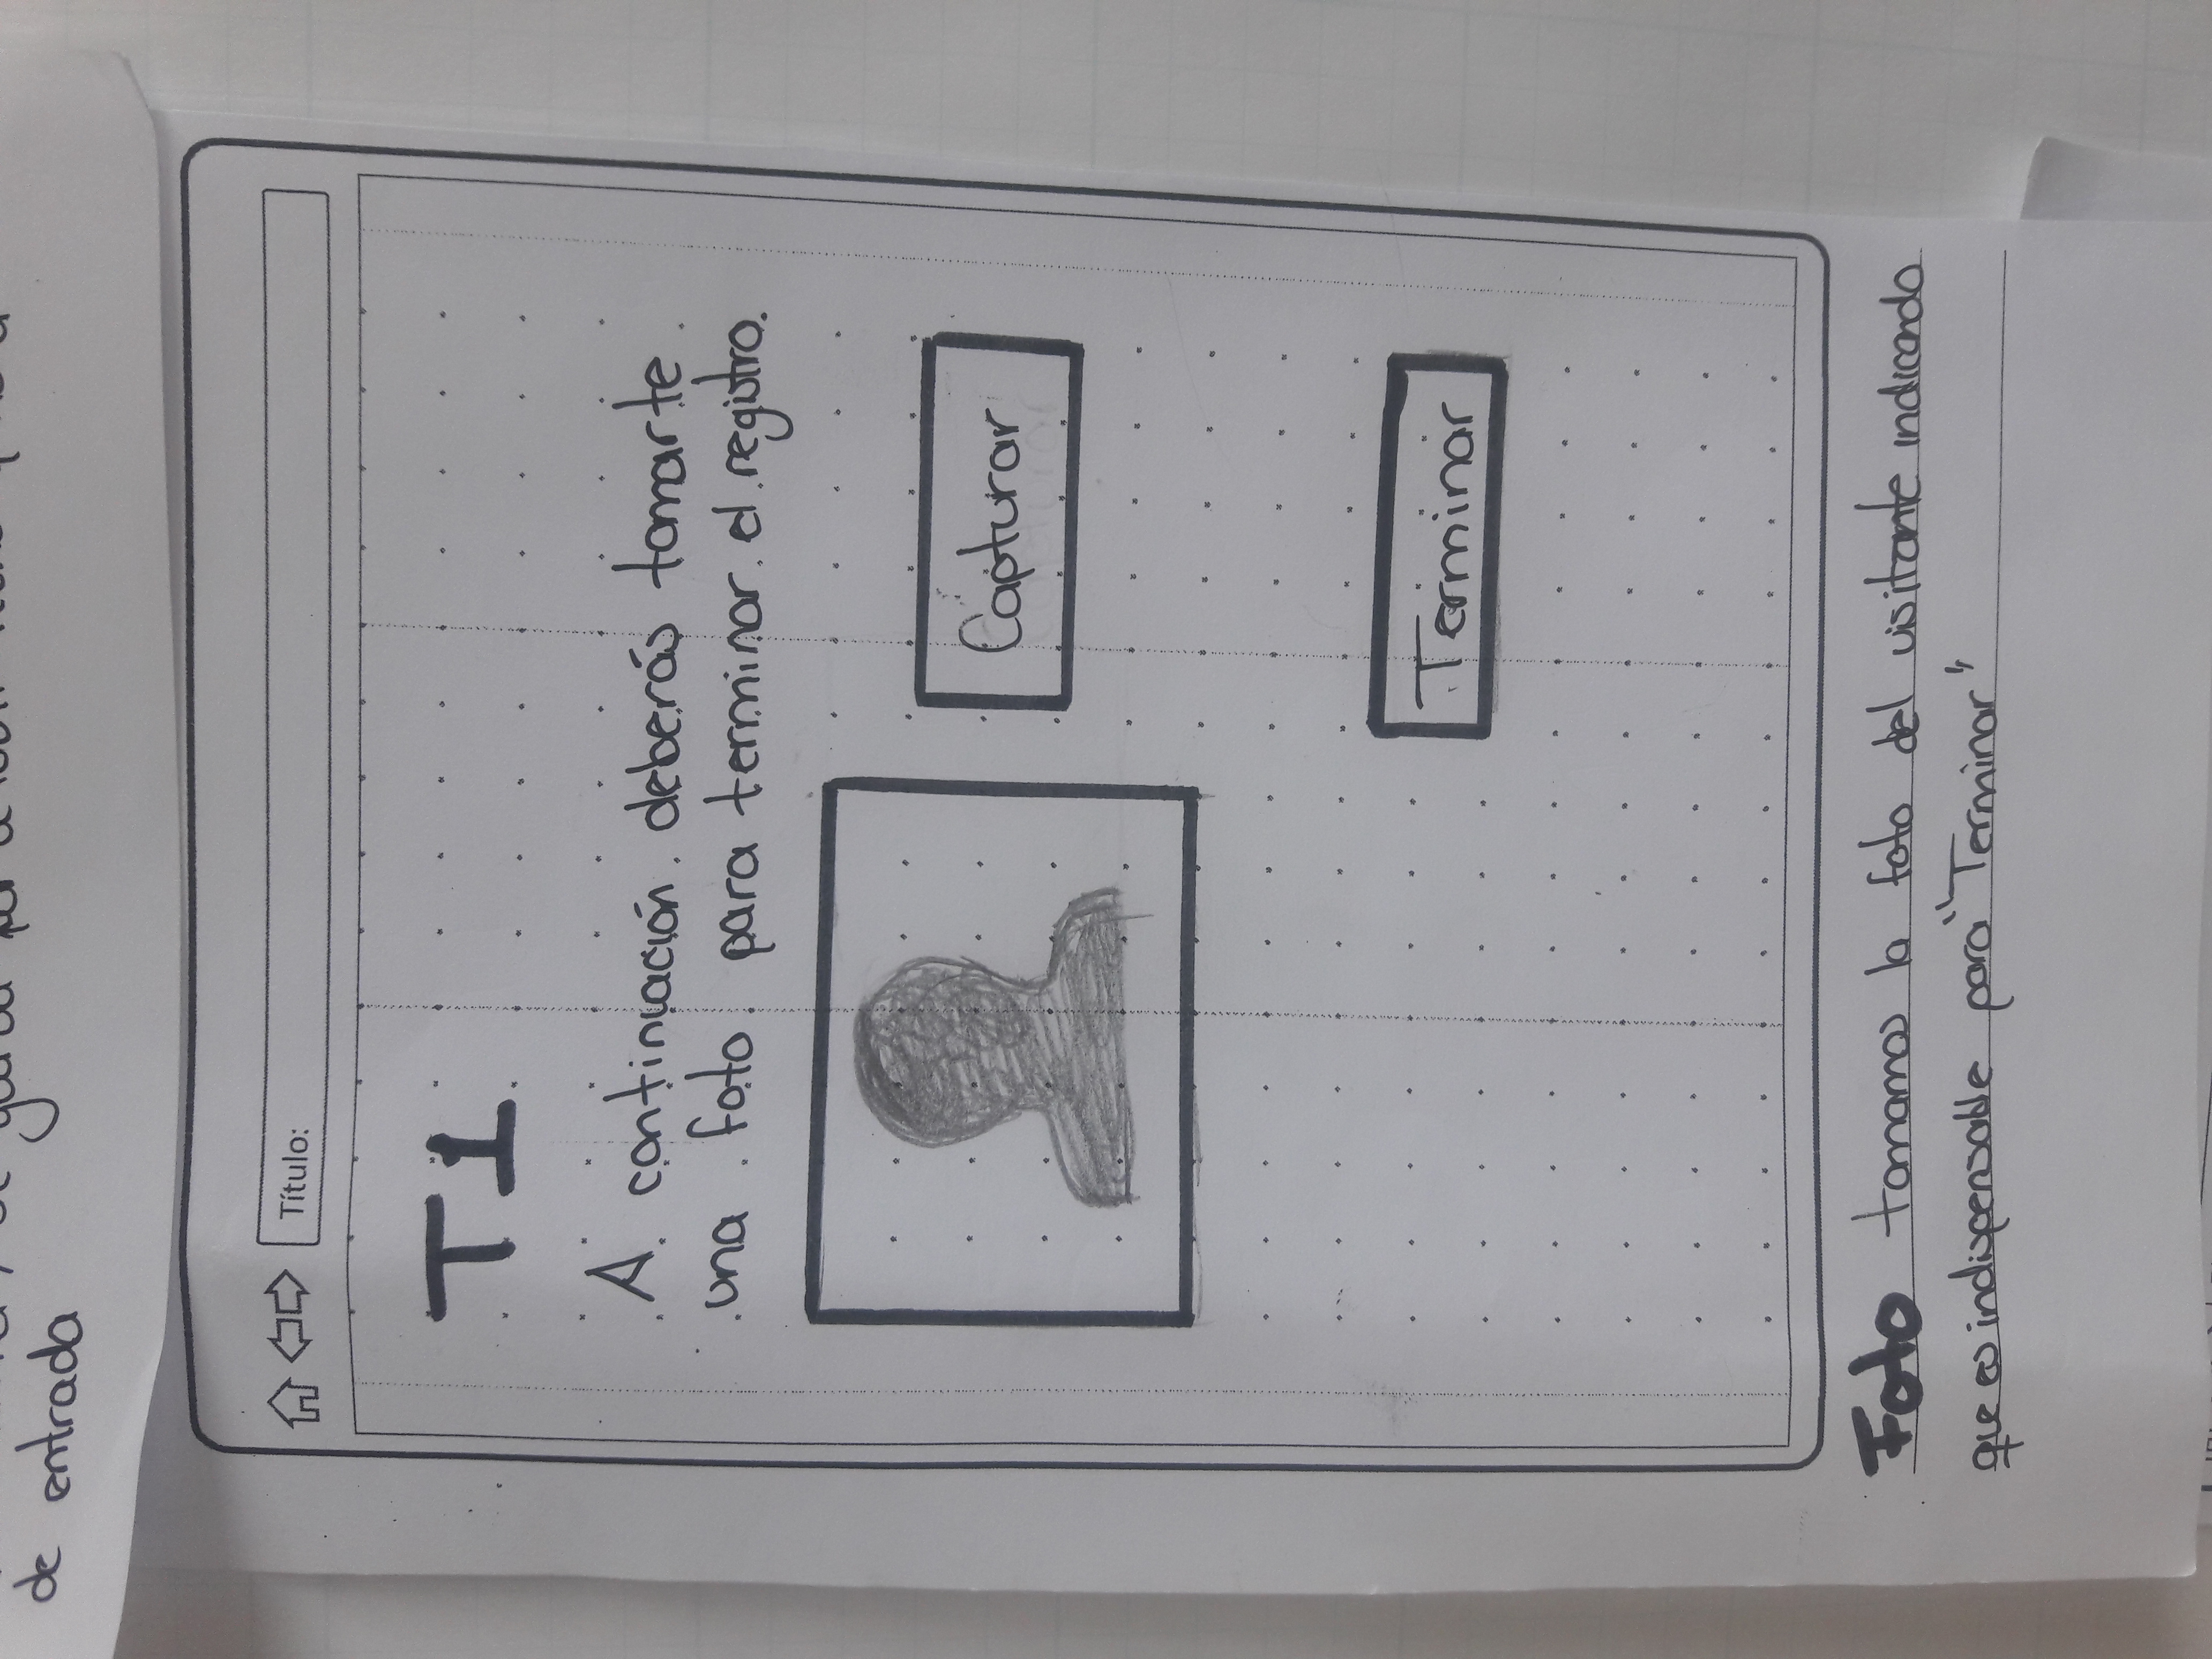 de entrada
Título:
T1
A continuación deberás tomarte
una foto para terminar el registro.
Capturar
Terminar
Foto tomamos la foto del visitante indicando
que es indispensable para "Terminar"